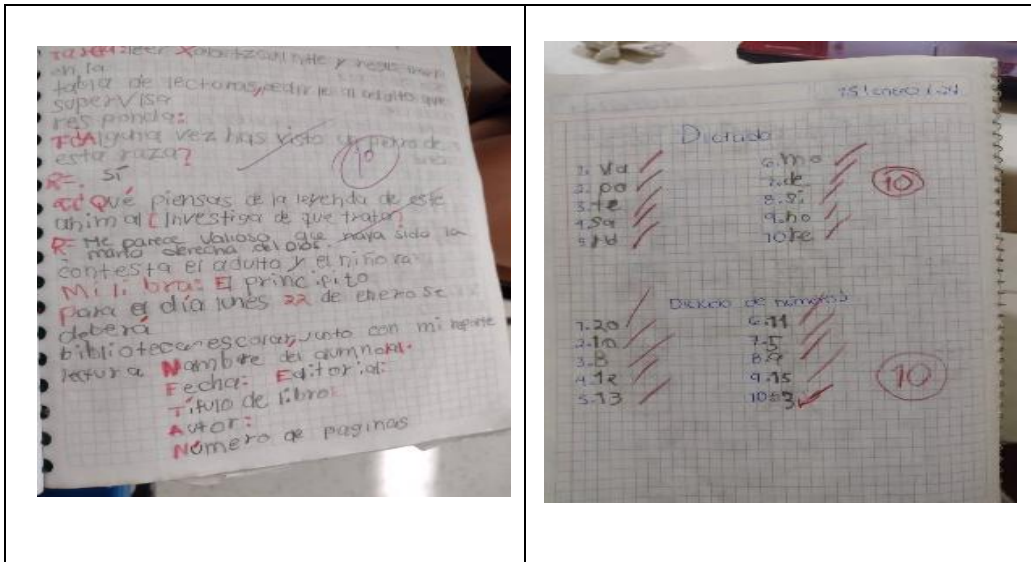 tarea: leer Xoloitzcuintle y registrar
en la
tabla de lectoras, pedirle al adulto que
supervisa
responda:
Alguna vez has visto un perro de
esta raza?
R=. Sí
Qué piensas de la leyenda de este
animal (Investiga de que trata)?
R= Me parece valioso que haya sido la
mano derecha del Dios.
contesta el adulto y el niño ra
Mi libro: El principito
para el día lunes 22 de enero se
deberá
biblioteca escolar, junto con mi reporte
lectura Nombre del alumno
Fecha: Editorial:
Título de libro:
Autor:
Número de paginas
10
15/enero/24
Dictado
1. Va
2. pa
3. te
4. Sa
6. mo
7. de
8. si
9. no
10
10
Dictado de números
1. 20
2. 10
3. 8
4. 12
5. 13
6. 11
7. 5
8. 9
9. 15
10. 3
10